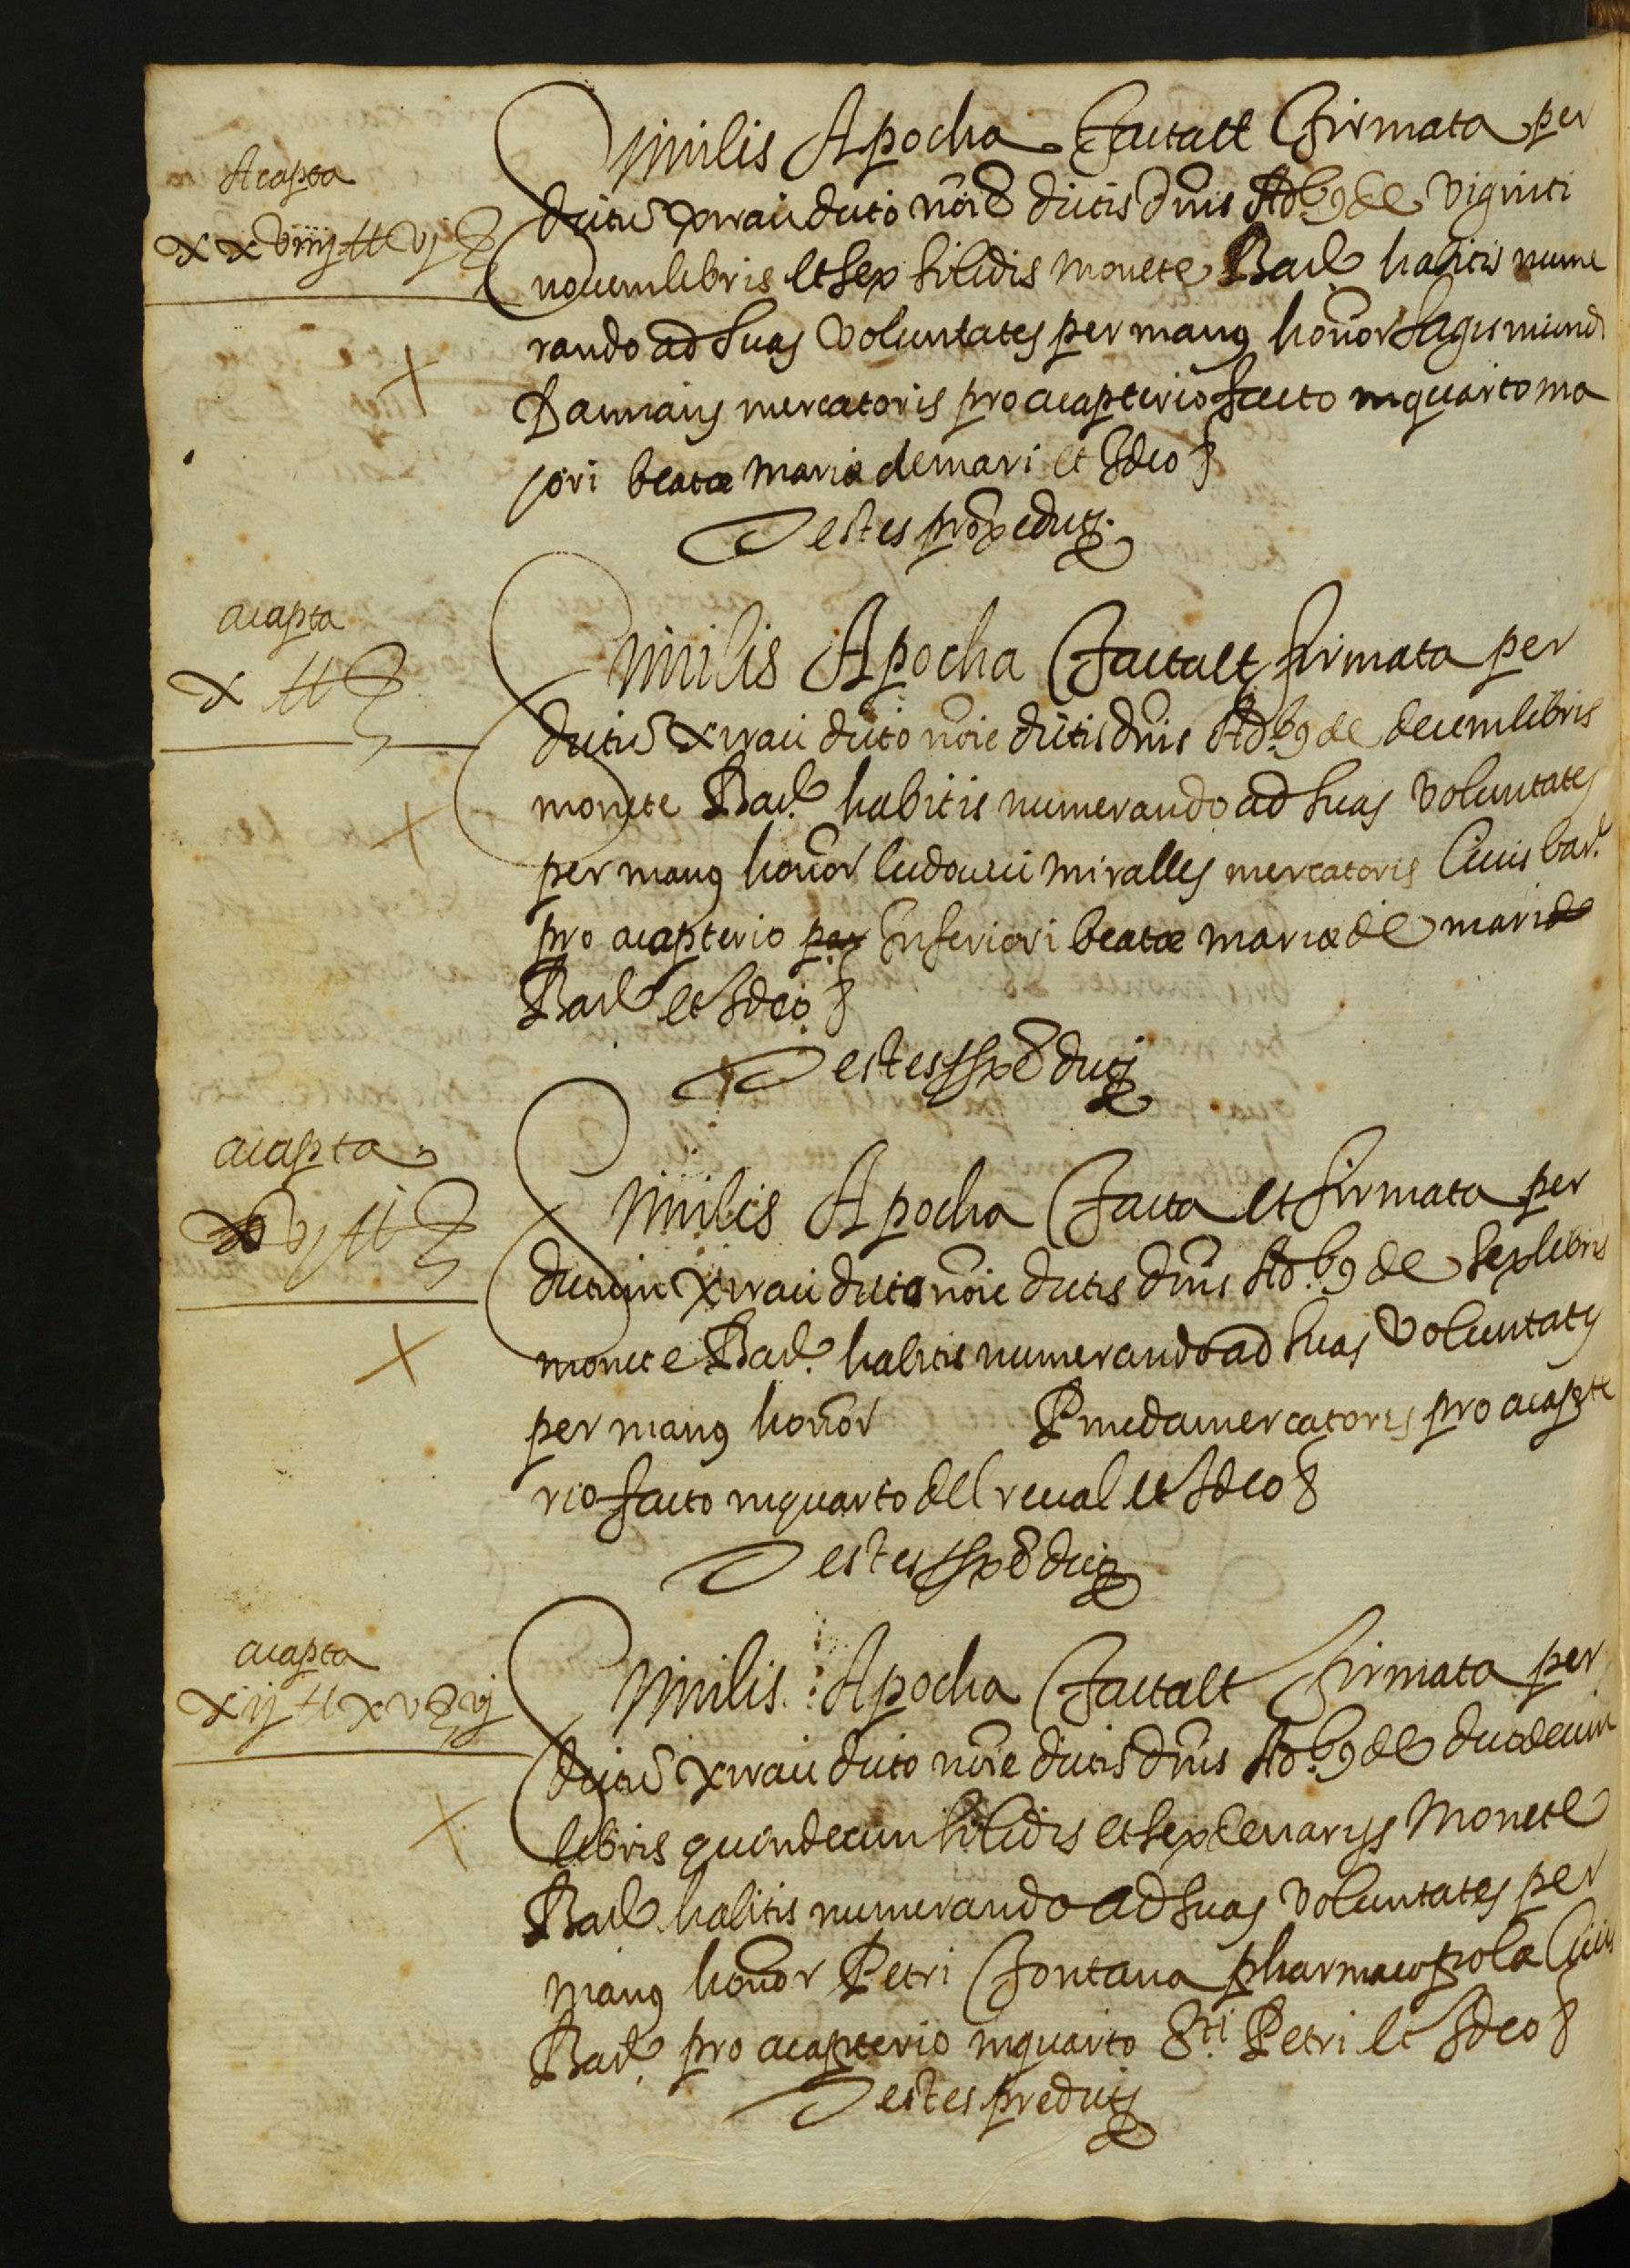 Acapta
xxviiij ℔ vj ß
Similis Apocha facta et firmata per
dictũ xrraii dicto nõie dictis dñis Adb9 de viginti
novem libris et sex solidis monete Barñ habitis nume
rando ad suas voluntates per manus honor Sagismundi
Damians mercatoris pro acapterio facto in quarto ma
jori beatæ Mariæ de mari et ideo &
Testes proxe dicti.
acapta
x ℔ ß
Similis Apocha facta et firmata per
dictũ xrraii dicto nõie dictis dñis Adb9 de decem libris
monete Barñ habitis numerando ad suas voluntates
per manus honor Ludovici Miralles mercatoris Civis bar.
pro acapterio par inferiori beatæ Mariæ de mari de
Barñ et ideo &
Testes sp̃dicti
acapta
vj ℔ ß
Similis Apocha facta et firmata per
dictum xrraii dicto nõie dictis dñis Adb9 de sex libris
monete Barñ habitis numerando ad suas voluntates
per manus honor Pineda mercatoris pro acapte
rio facto in quarto del reval et ideo &
Testes sp̃dicti
acapta
xij ℔ xv ß vj
Similis Apocha facta et firmata per
dictũ xrraii dicto nõie dictis dñis Adb9 de duodecim
libris quindecim solidis et sex denarijs Monete
Barñ habitis numerando ad suas voluntates per
manus honor Petri Fontana pharmacopola Civis
Barñ pro acapterio in quarto Sti Petri et ideo &
Testes predicti